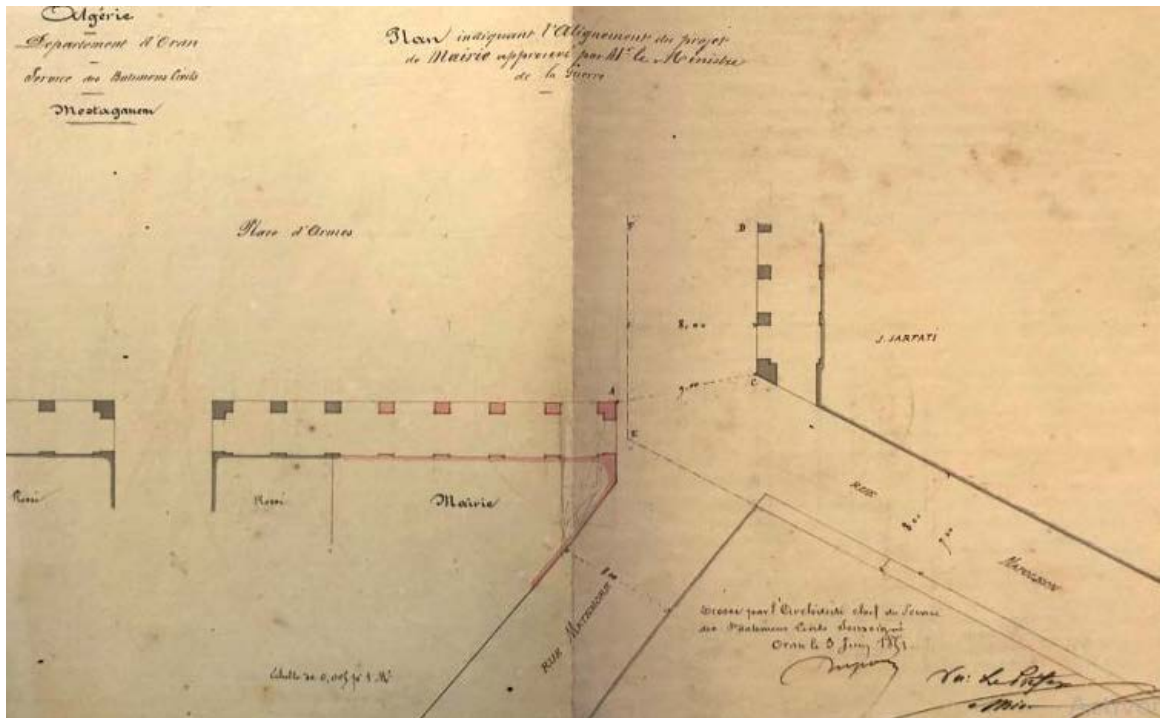 Algérie
Département d'Oran
Service des Batimens Civils
Mostaganem
Plan indiquant l'Alignement du projet
de Mairie approuvé par Mr le Ministre
de la Guerre
Place d'Armes
F
D
8,00
J. SARFATI
9,00
C
A
E
Rossi
Rossi
Mairie
RUE
NAPOLEON
8,00
7,00
RUE MATEMORE
8,00
Dressé par l'Architecte chef du Service
des Batimens Civils Soussigné
Oran le 3 Juin 1851
Echelle de 0,005 pr 1 M.
Vu: Le Préfet